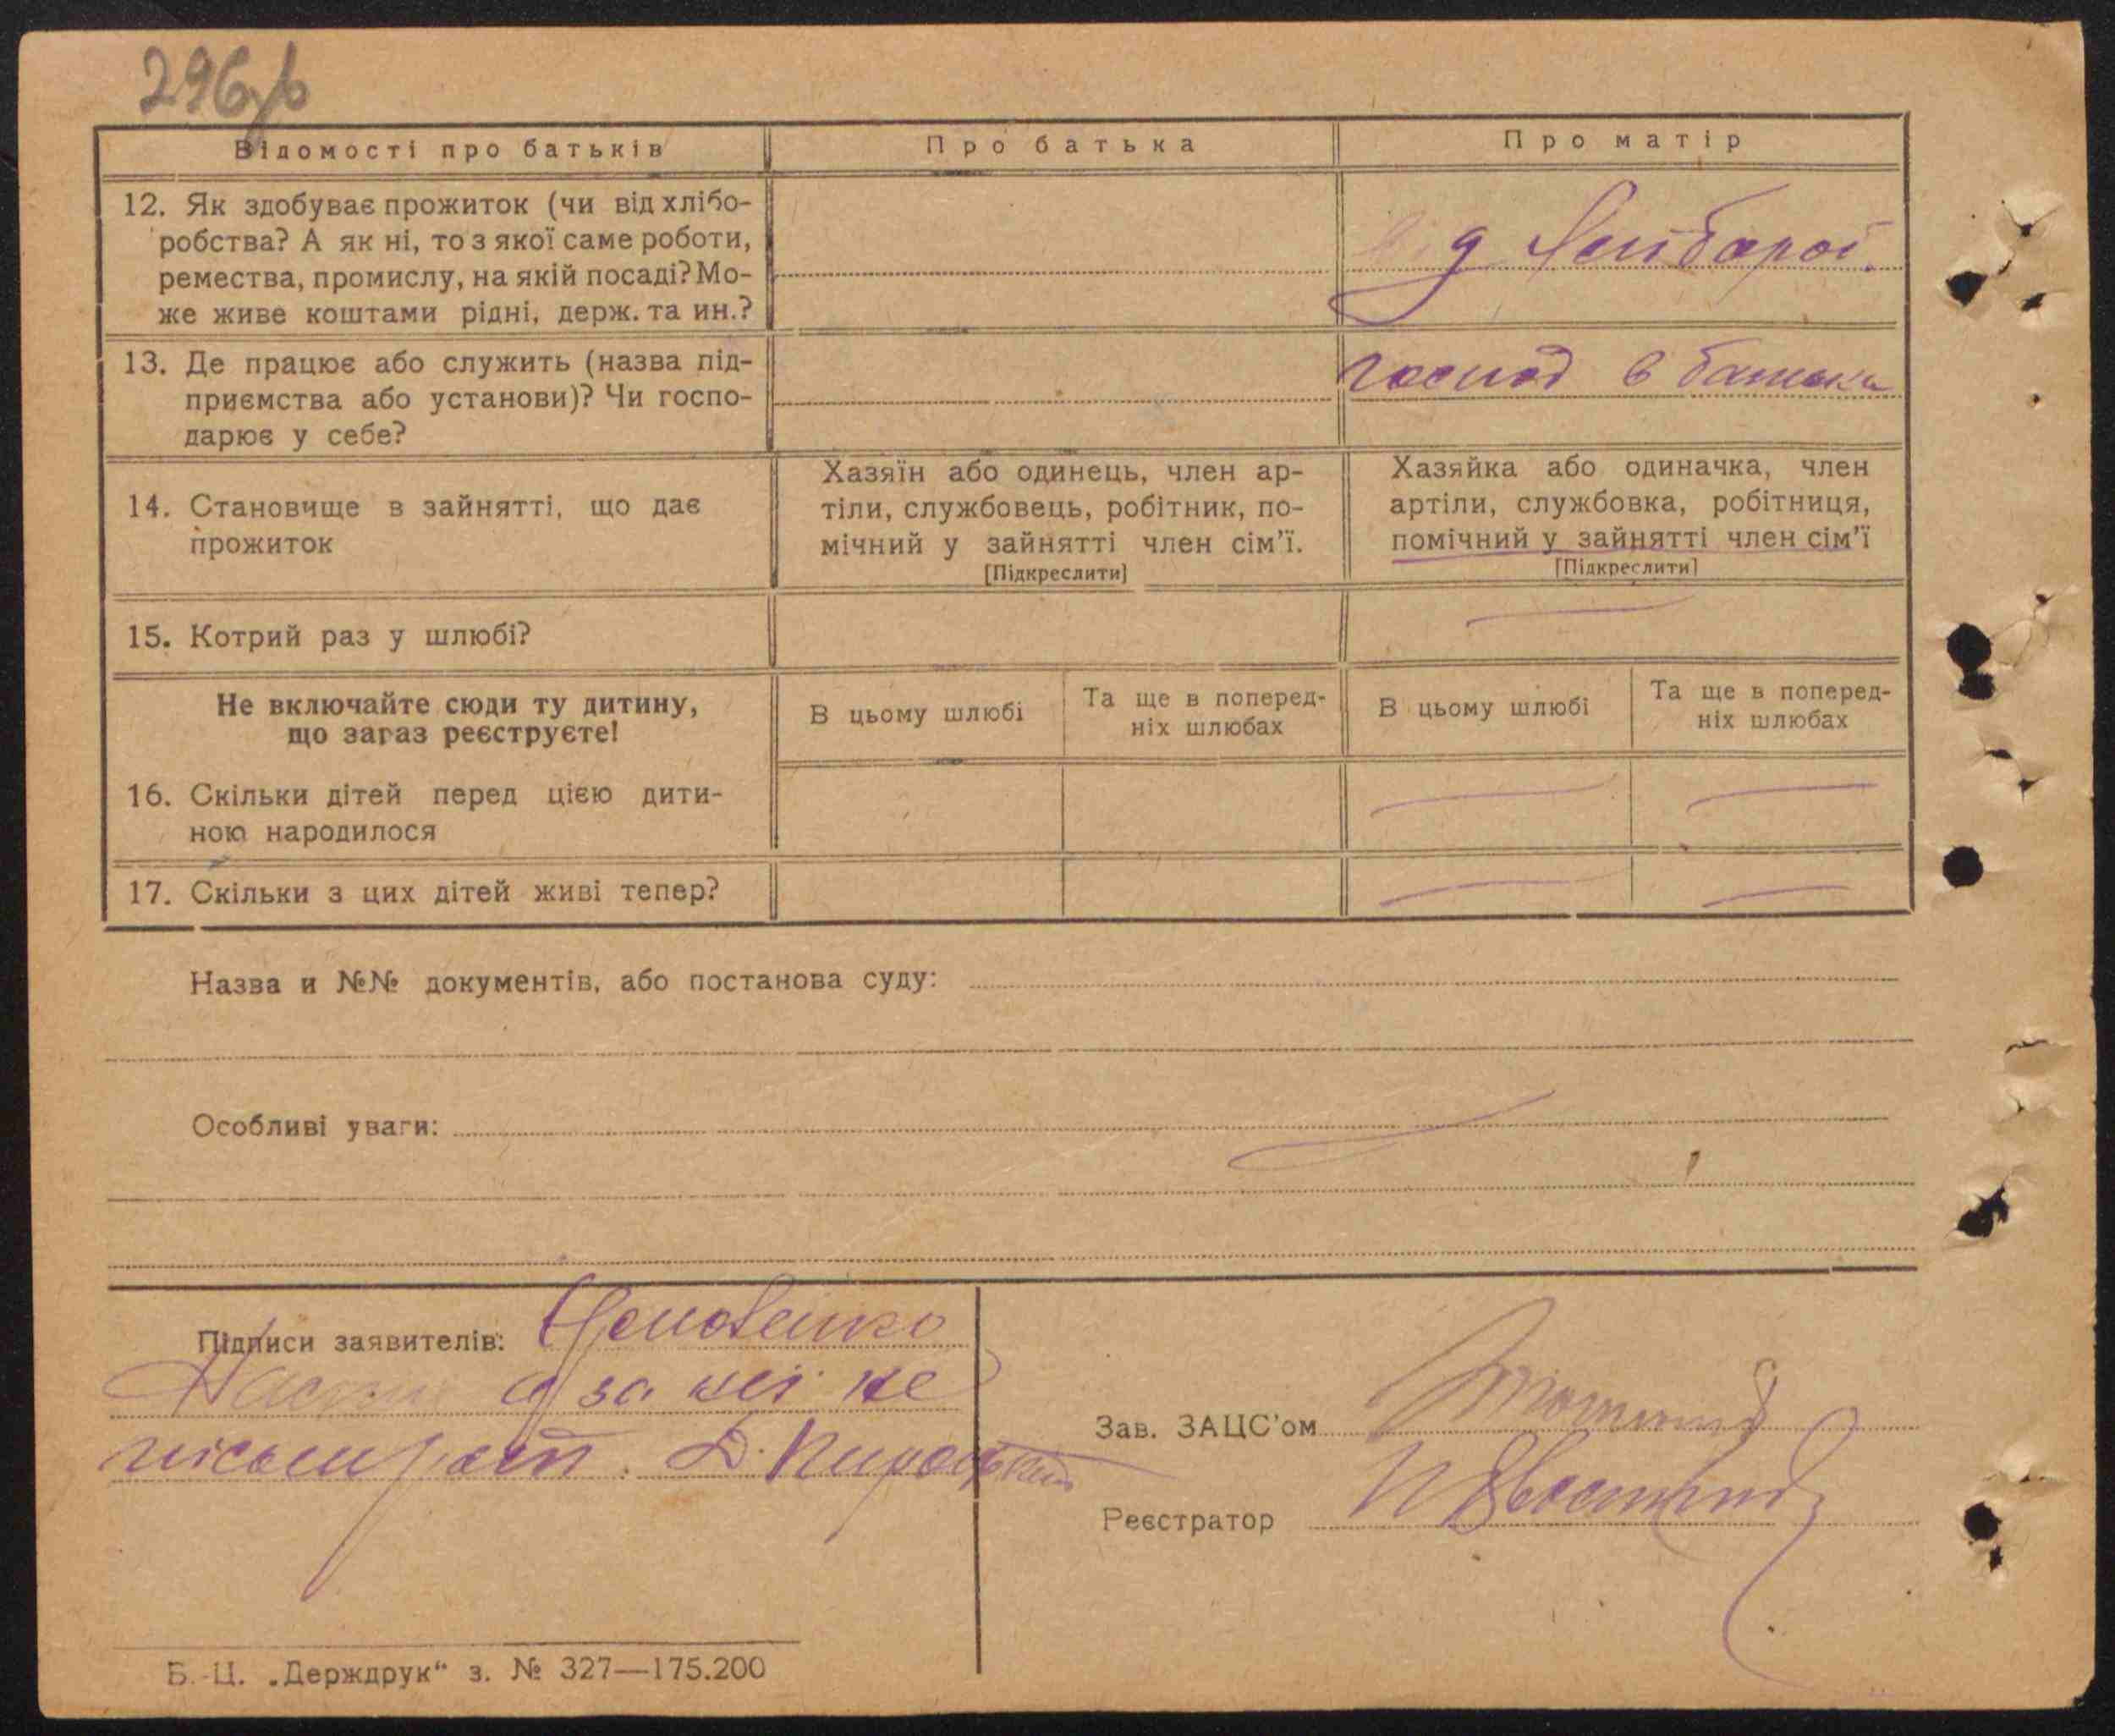 296
Відомості про батьків
Про батька
Про матір
12. Як здобуває прожиток (чи від хлібо-
робства? А як ні, то з якої саме роботи,
ремества, промислу, на якій посаді? Мо-
же живе коштами рідні, держ. та ин.?
від
13. Де працює або служить (назва під-
приємства або установи)? Чи госпо-
дарює у себе?
господ в батька
14. Становище в зайнятті, що дає
прожиток
Хазяїн або одинець, член ар-
тіли, службовець, робітник, по-
мічний у зайнятті член сім'ї.
[Підкреслити]
Хазяйка або одиначка, член
артіли, службовка, робітниця,
помічний у зайнятті член сім'ї
[Підкреслити]
15. Котрий раз у шлюбі?
Не включайте сюди ту дитину,
що зараз реєструєте!
В цьому шлюбі
Та ще в поперед-
ніх шлюбах
В цьому шлюбі
Та ще в поперед-
ніх шлюбах
16. Скільки дітей перед цією дити-
ною народилося
17. Скільки з цих дітей живі тепер?
Назва и №№ документів, або постанова суду:
Особливі уваги:
Підписи заявителів:
а за неї не
Д.
Зав. ЗАЦС'ом
Реєстратор
Б.-Ц. „Держдрук“ з. № 327—175.200